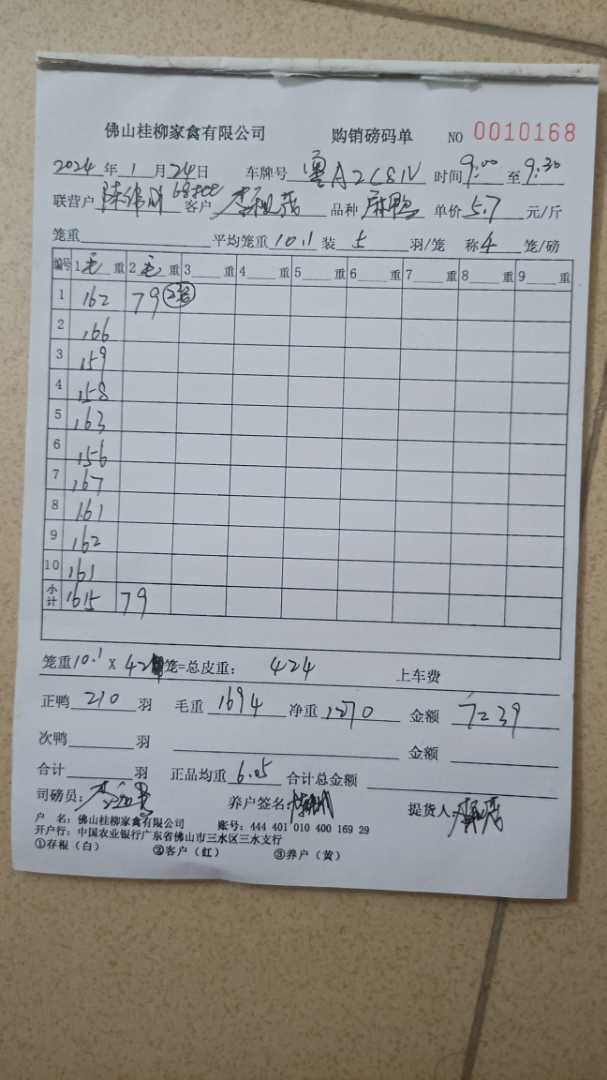 佛山桂柳家禽有限公司 购销磅码单 NO 0010168
2024年1月24日 车牌号 粤A2C81V 时间9:00至9:30
联营户 客户 品种 麻鸭 单价5.7元/斤
笼重 平均笼重10.1装5羽/笼 称4笼/磅
编号 1毛重 2毛重 3重 4重 5重 6重 7重 8重 9重
1 162 79 2笼
2 166
3 159
4 158
5 163
6 156
7 167
8 161
9 162
10 161
小计 1615 79
笼重10.1X42笼=总皮重：424 上车费
正鸭210羽 毛重1694净重1270 金额7239
次鸭 羽 金额
合计 羽 正品均重6.05合计总金额
司磅员： 养户签名： 提货人：
户 名：佛山桂柳家禽有限公司 账号：444 401 010 400 169 29
开户行：中国农业银行广东省佛山市三水区三水支行
①存根（白） ②客户（红） ③养户（黄）